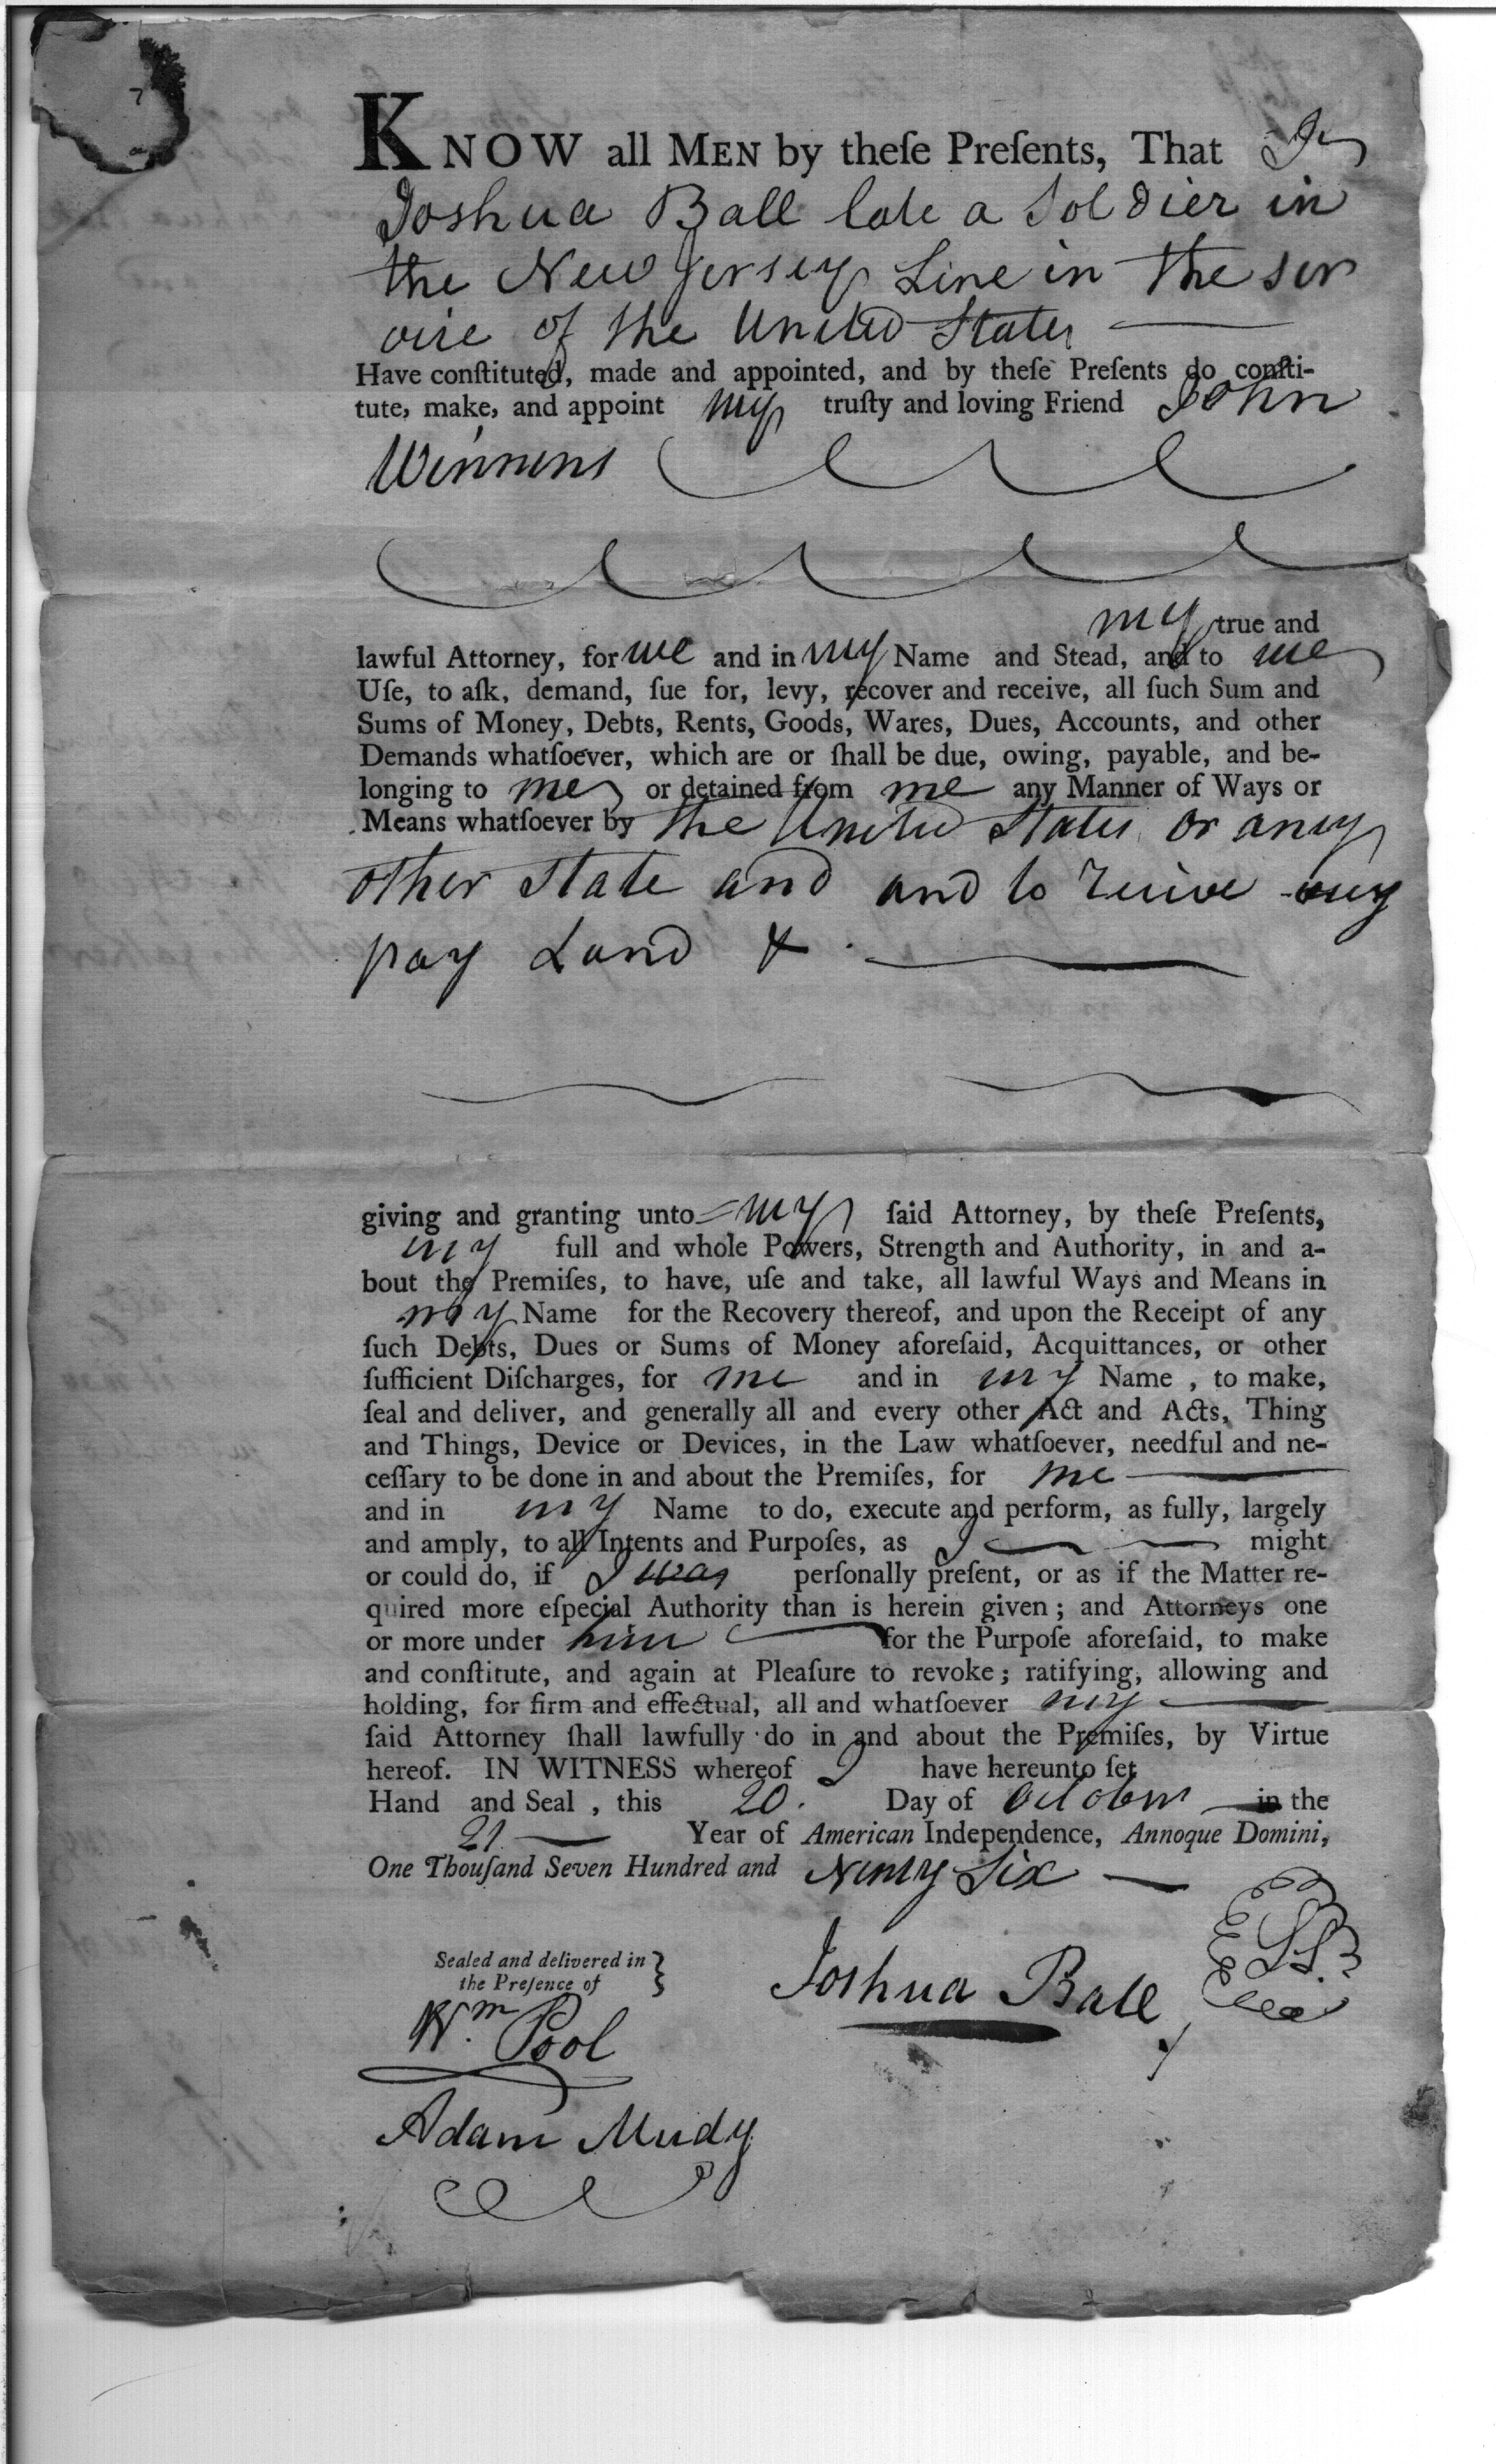 KNOW all MEN by theſe Preſents, That I
Joshua Ball late a Soldier in
the New Jersey Line in the ser
vice of the United States
Have conſtituted, made and appointed, and by theſe Preſents do conſti-
tute, make, and appoint my truſty and loving Friend John
Winnens
my true and
lawful Attorney, for me and in my Name and Stead, and to me
Uſe, to aſk, demand, ſue for, levy, recover and receive, all ſuch Sum and
Sums of Money, Debts, Rents, Goods, Wares, Dues, Accounts, and other
Demands whatſoever, which are or ſhall be due, owing, payable, and be-
longing to me or detained from me any Manner of Ways or
Means whatſoever by the United States or any
other State and and to receive my
pay Land &
giving and granting unto my ſaid Attorney, by theſe Preſents,
my full and whole Powers, Strength and Authority, in and a-
bout the Premiſes, to have, uſe and take, all lawful Ways and Means in
my Name for the Recovery thereof, and upon the Receipt of any
ſuch Debts, Dues or Sums of Money aforeſaid, Acquittances, or other
ſufficient Diſcharges, for me and in my Name , to make,
ſeal and deliver, and generally all and every other Act and Acts, Thing
and Things, Device or Devices, in the Law whatſoever, needful and ne-
ceſſary to be done in and about the Premiſes, for me
and in my Name to do, execute and perform, as fully, largely
and amply, to all Intents and Purpoſes, as I might
or could do, if I was perſonally preſent, or as if the Matter re-
quired more eſpecial Authority than is herein given ; and Attorneys one
or more under him for the Purpoſe aforeſaid, to make
and conſtitute, and again at Pleaſure to revoke ; ratifying, allowing and
holding, for firm and effectual, all and whatſoever my
ſaid Attorney ſhall lawfully do in and about the Premiſes, by Virtue
hereof. IN WITNESS whereof I have hereunto ſet
Hand and Seal , this 20. Day of October in the
21 Year of American Independence, Annoque Domini,
One Thouſand Seven Hundred and Ninty Six
Sealed and delivered in
the Preſence of
Joshua Ball
LS.
Wm. Pool
Adam Mudy